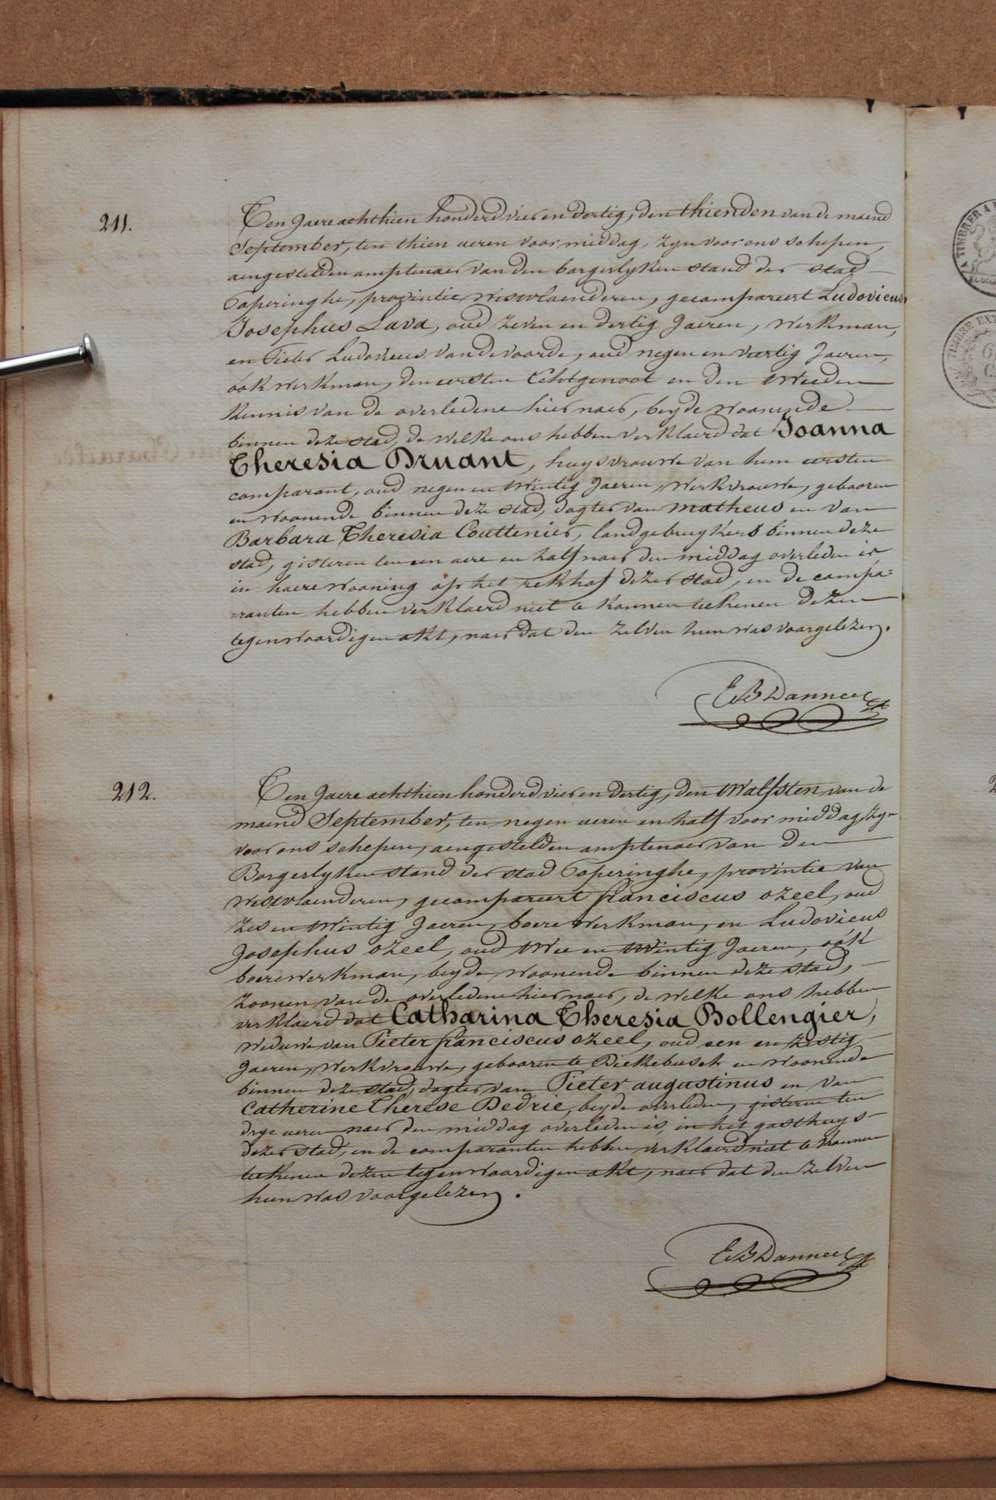 211.
Ten Jaere achthien honderd vier en dertig, den thienden van de maend
September, ten thien ueren voor middag, zyn voor ons schepen,
aengestelden amptenaer van den borgerlyken stand der stad
Poperinghe, provintie Westvlaenderen, gecompareert Ludovicus
Josephus Lava, oud zeven en dertig Jaeren, werkman,
en Pieter Ludovicus van de voorde, oud negen en vertig Jaeren,
oók werkman, den eersten Echtgenoot en den tweeden
kennis van de overledene hier naer, beyde woonende
binnen deze stad, de welke ons hebben verklaerd dat Joanna
Theresia Druant, huysvrouwe van hem eersten
comparant, oud negen en twintig Jaeren, werkvrouwe, gebooren
en woonende binnen deze stad, dogter van matheus en van
Barbara Theresia Couttenier, landgebruykers binnen deze
stad, gisteren ten een uere en half naer den middag overleden is
in haere wooning op het rekhof dezer stad, en de compa-
ranten hebben verklaerd niet te konnen teekenen dezen
tegenwoordigen akt, naer dat den zelven hun was voorgelezen.
E B Danneel
212.
Ten Jaere achthien honderd vier en dertig, den twalfsten van de
maend September, ten negen ueren en half voor middag, zyn
voor ons schepen, aengestelden amptenaer van den
Borgerlyken stand der stad Poperinghe, provintie van
Westvlaenderen, gecompareert franciscus ozeel, oud
zes en twintig Jaeren, boere werkman, en Ludovicus
Josephus ozeel, oud twee en twintig Jaeren, oók
boerewerkman, beyde woonende binnen deze stad,
zoonen van de overledene hier naer, de welke ons hebben
verklaerd dat Catharina Theresia Bollengier,
weduwe van Pieter franciscus ozeel, oud een en zestig
Jaeren, werkvrouwe, gebooren te Dickebusch en woonende
binnen deze stad, dogter van Pieter augustinus en van
Catherine Therese Dedrie, beyde overleden, gisteren ten
drye ueren naer den middag overleden is, in het gasthuys
dezer stad, en de comparanten hebben verklaerd niet te konnen
teekenen dezen tegenwoordigen akt, naer dat den zelven
hun was voorgelezen.
E B Danneel